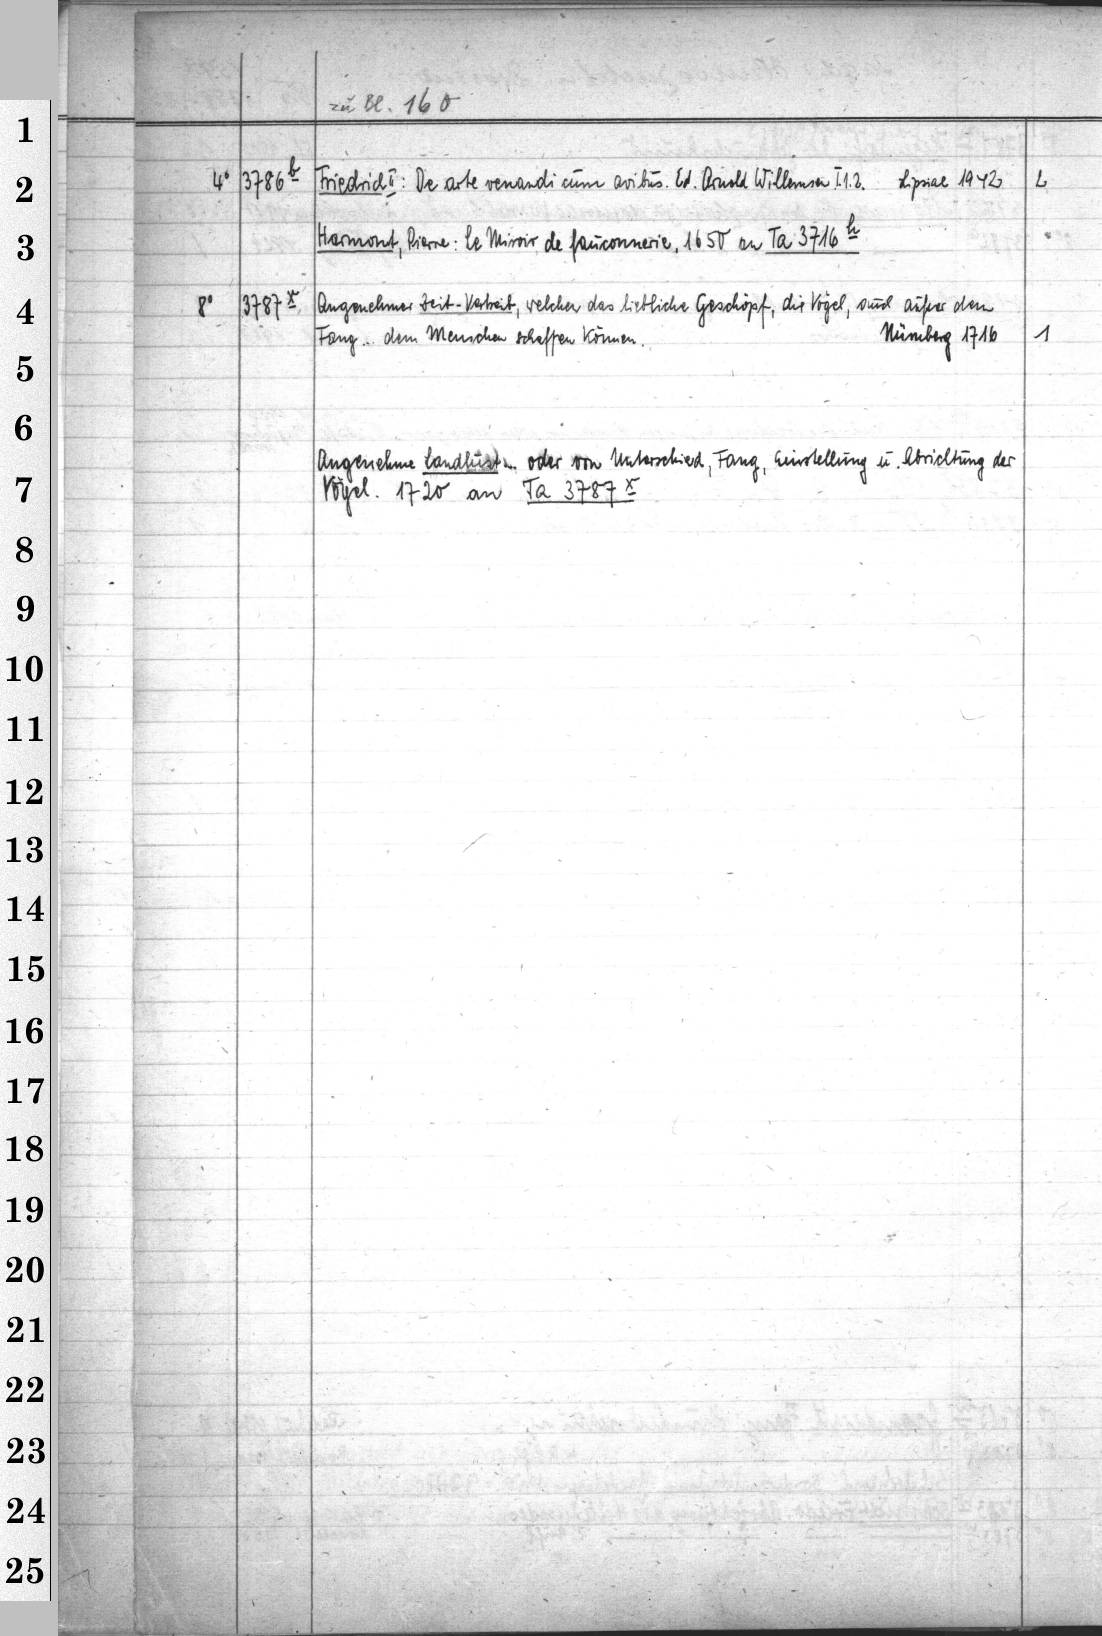 zu Bl. 160
1
2
4° 3786 b Friedrich II: De arte venandi cum avibus. Ed. Arnold Willemsen I.1.2. Lipsiae 1942 2
3
Harmont, Pierre: Le Miroir de fauconnerie, 1650 an Ta 3716 h
4
8° 3787 x Angenehmer Zeit-Vertreib, welchen das liebliche Geschöpf, die Vögel, auch außer dem
Fang... dem Menschen schaffen können. Nürnberg 1716 1
5
6
Angenehme Landlust... oder von Unterschied, Fang, Einstellung u. Abrichtung der
7
Vögel. 1720 an Ta 3787 x
8
9
10
11
12
13
14
15
16
17
18
19
20
21
22
23
24
25